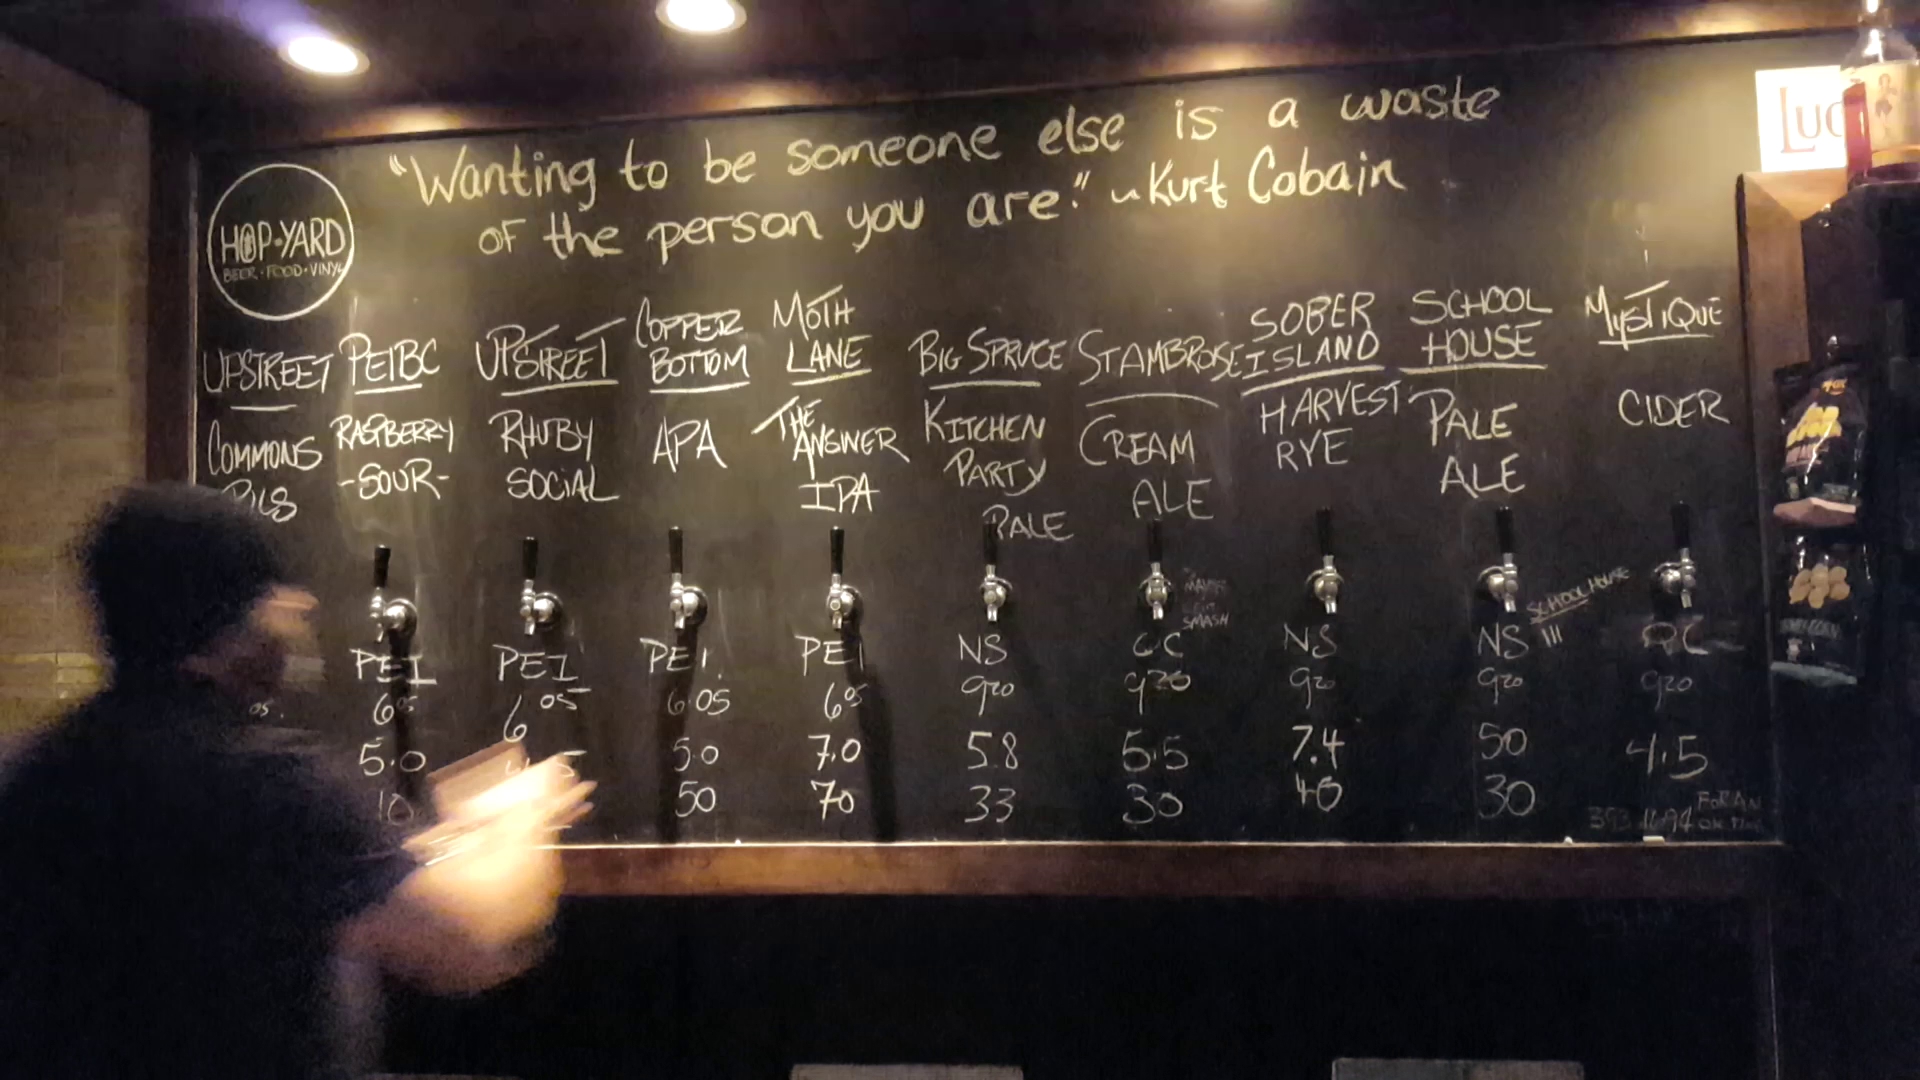 "Wanting to be someone else is a waste
of the person you are." ~ Kurt Cobain
HOP-YARD
BEER · FOOD · VINYL
LUC
UPSTREET
COMMONS
PILS
05.
PEIBC
RASPBERRY
-SOUR-
PEI
6 05
5.0
10
UPSTREET
RHUBY
SOCIAL
PEI
6 05
COPPER
BOTTOM
APA
PEI
6.05
5.0
50
MOTH
LANE
THE
ANSWER
IPA
PEI
6 05
7.0
70
BIG SPRUCE
KITCHEN
PARTY
PALE
NS
920
5.8
33
STAMBROISE
CREAM
ALE
SMASH
QC
920
5.5
30
SOBER
ISLAND
HARVEST
RYE
NS
920
7.4
40
SCHOOL
HOUSE
PALE
ALE
SCHOOL HOUSE
NS
920
50
30
MYSTIQUE
CIDER
QC
920
4.5
FOR AN